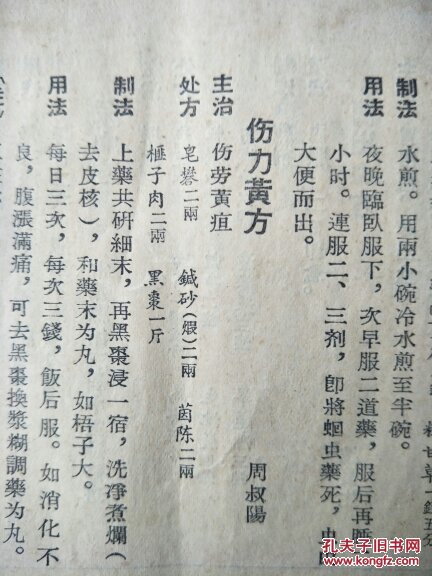 制法　水煎。用兩小碗冷水煎至半碗。
用法　夜晚臨臥服下，次早服二道藥，服后再睡
小时。連服二、三剂，卽將蛔虫藥死，虫
大便而出。
伤力黃方　周叔陽
主治　伤劳黃疸
处方　皂礬二兩　鍼砂（煅）二兩　茵陈二兩
榧子肉二兩　黑棗一斤
制法　上藥共研細末，再黑棗浸一宿，洗淨煮爛（
去皮核），和藥末为丸，如梧子大。
用法　每日三次，每次三錢，飯后服。如消化不
良，腹漲滿痛，可去黑棗換漿糊調藥为丸。
孔夫子旧书网